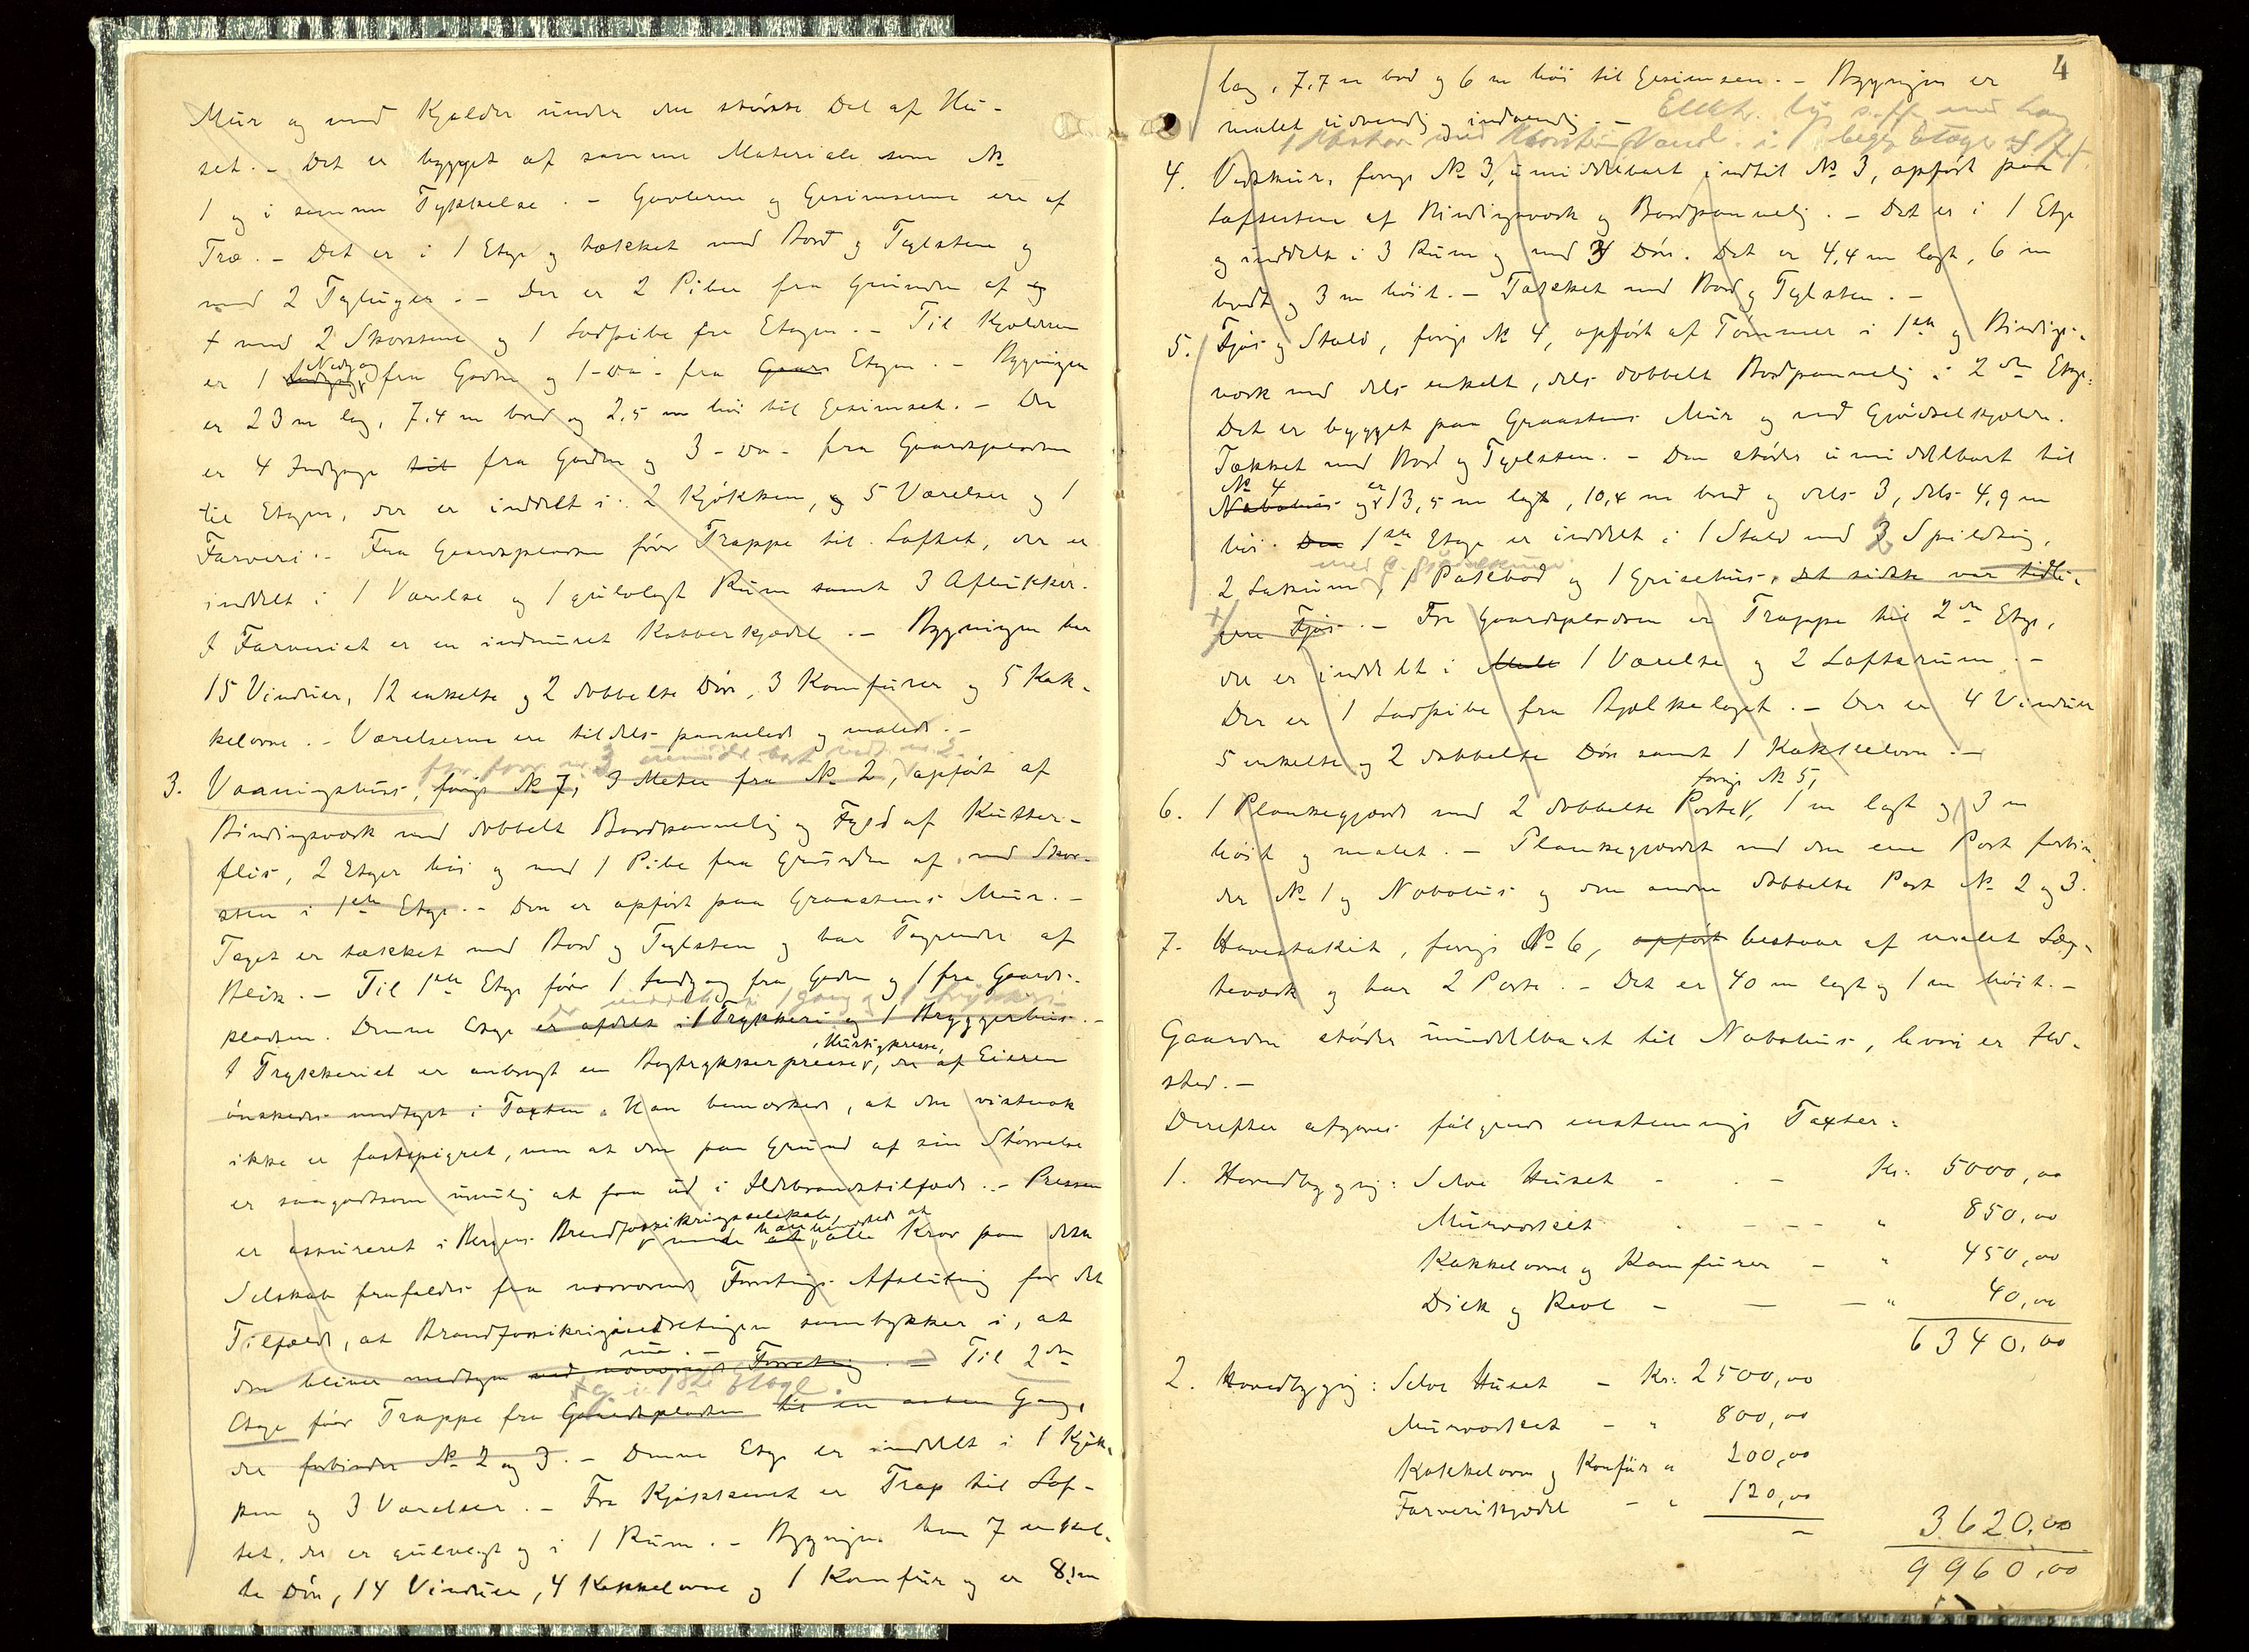 Mur og med Kjelder under den største Del af Hu-
set. - Det er bygget af samme Materiale som №
1 og i samme Tykkelse. - Gavlerne og Gesimserne ere af
Træ. - Det er i 1 Etage og tækket med Bord og Teglstene og
med 2 Tagluger. - Der er 2 Piber fra Grunden af og
+ med 2 Skorstene og 1 Lodpibe fra Etagen. - Til Kjelderen
er 1 Indgang Nedgang fra Gaden og 1 - do - fra Gaar Etagen. - Bygningen
er 23 m lang, 7,4 m bred og 2,5 m høi til Gesimset. - Der
er 4 Indgange til fra Gaden og 3 - do - fra Gaardspladsen
til Etagen, der er inddelt i: 2 Kjøkken, og 5 Værelser og 1
Farveri. - Fra Gaardspladsen fører Trappe til Loftet, der er
inddelt i 1 Værelse og 1 gulvlagt Rum samt 3 Aflukker.
I Farveriet er en indmuret Kobberkjædel. - Bygningen har
15 Vinduer, 12 enkelte og 2 dobbelte Døre, 3 Komfurer og 5 Kak-
kelovne. - Værelserne ere tildels pannelede og malede. -
3. Vaaningshus, forrige № 7, 3 Meter fra № 2, opført af
Bindingsværk med dobbelt Bordpannelig og Fyld af Kutter-
flis, 2 Etager høi og med 1 Pibe fra Grunden af med Skor-
sten i 1ste Etage. - Den er opført paa Graastens Mur. -
Taget er tækket med Bord og Teglsten og har Tagrender af
Blik. - Til 1ste Etage fører 1 Indgang fra Gaden og 1 fra Gaards-
pladsen. Denne Etage er afdelt i 1 Trykkeri og 1 Bryggerhus. -
I Trykkeriet er anbragt en Bogtrykkerpresse, Hurtigpresse, der af Eieren
ønskedes medtaget i Taxten. Han bemærkede, at den vistnok
ikke er fastspigret, men at den paa Grund af sin Størrelse
er saagodtsom umulig at faa ud i Ildebrandstilfælde. - Pressen
er assureret i Bergens Brandforsikringsselskab, men at han bemærked at alle Krav paa dette
Selskab frafaldes fra nærværende Forretnings Afslutning for det
Tilfælde, at Brandforsikringsindretningen samtykker i, at
den bliver medtagen nu. - ved nærværende Forretning. - Til 2den
Etage fører Trappe fra Gaardspladsen til en aaben Gang,
der forbinder № 2 og 3. - Denne Etage er inddelt i 1 Kjøk-
ken og 3 Værelser. - Fra Kjøkkenet er Trap til Lof-
tet, der er gulvlagt og i 1 Rum. - Bygningen har 7 enkel-
te Døre, 14 Vinduer, 4 Kakkelovne og 1 Komfur og er 8,1 m
4
lang, 7,7 m bred og 6 m høi til Gesimsen. - Bygningen er
malet udvendig og indvendig. - Elektr. lys
4. Vedskur, forrige № 3, umiddelbart indtil № 3, opført paa
Loftsstene af Bindingsværk og Bordpannelig. - Det er i 1 Etage
og inddelt i 3 Rum og med 3 Døre. Det er 4,4 m langt, 6 m
bredt og 3 m høit. - Tækket med Bord og Teglsten. -
5. Fjøs og Stald, forrige № 4, opført af Tømmer i 1ste og Bindings-
værk med dels enkelt, dels dobbelt Bordpannelig i 2den Etage.
Det er bygget paa Graastens Mur og med Gjødselkjelder.
Tækket med Bord og Teglsten. - Den støder umiddelbart til
Nabohus № 4 og er 13,5 m langt, 10,4 m bred og dels 3, dels 4,9 m
høi. Den 1ste Etage er inddelt i 1 Stald med 3 Spildtoug,
2 Lukrum, 1 Pakbod og 1 Grisehus, det sidste var tidli-
gere Fjøs. - Fra Gaardspladsen er Trappe til 2den Etage,
der er inddelt i 1 Værelse og 2 Loftsrum. -
Der er 1 Lodpibe fra Bjelkelaget. - Der er 4 Vinduer
5 enkelte og 2 dobbelte Døre samt 1 Kakkelovn. -
6. 1 Plankegjærde med 2 dobbelte Porte, forrige № 5, 1 m langt og 3 m
høit og malet. - Plankegjærdet med den ene Port forbin-
der № 1 og Nabohus og den anden dobbelte Port № 2 og 3.
7. Havestakit, forrige № 6, opført bestaar af malet Læg-
teværk og har 2 Porte. - Det er 40 m langt og 1 m høit. -
Gaarden støder umiddelbart til Nabohus, hvori er Ild-
sted. -
Derefter afgaves følgende enstemmige Taxter:
1. Hovedbygning: Selve Huset - - - Kr. 5000,00
Murværket - - - - " 850,00
Kakkelovne og Komfurer - " 450,00
Disk og Reol - - - " 40,00
6340,00
2. Hovedbygning: Selve Huset - Kr. 2500,00
Murværket - " 800,00
Kakkelovne og Komfur " 200,00
Farverikjædel - " 120,00
3620,00
9960,00